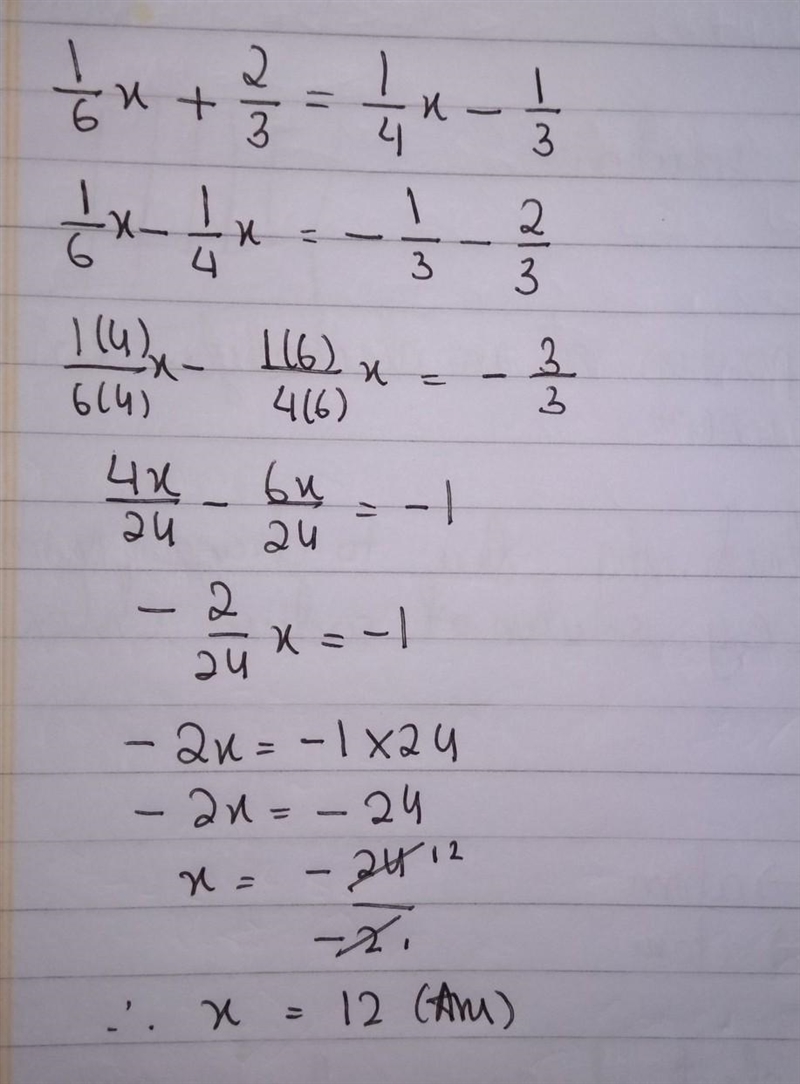 1/6 x + 2/3 = 1/4 x - 1/3
1/6 x - 1/4 x = - 1/3 - 2/3
1(4)/6(4) x - 1(6)/4(6) x = - 3/3
4x/24 - 6x/24 = -1
- 2/24 x = -1
- 2x = -1 × 24
- 2x = - 24
x = - 24 12 / -2 .
∴ x = 12 (Ans)